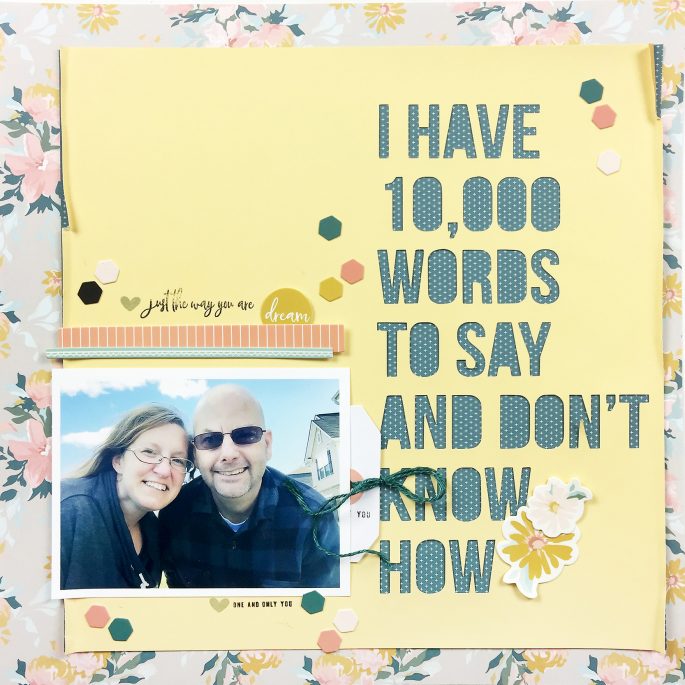 I HAVE
10,000
WORDS
TO SAY
AND DON'T
KNOW
HOW
just the way you are
dream
YOU
ONE AND ONLY YOU